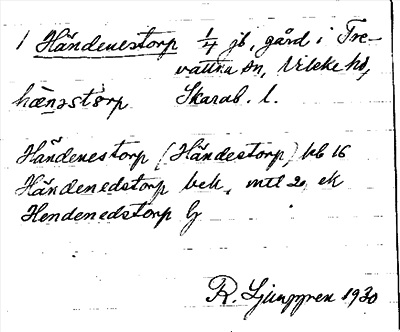 1 Händenestorp 1/4 jb, gård i Tre-
vattna sn, Vilske hd,
hæ̀nəstɔrp Skarab. l.
Händenestorp (Händestorp) kb 16
Händenedstorp bek, mtl 2, ek
Hendenedstorp G
R. Ljunggren 1930